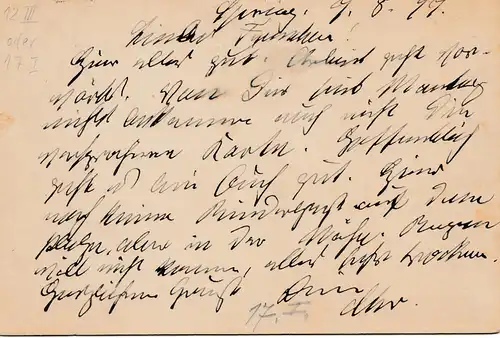 12 III
oder
17 I
9. 8. 99.
Liebes Frauchen!
Hier alles gut. Arbeit geht vor-
wärts. Von Dir seit Montag
nichts bekommen auch nicht die
versprochene Karte. Hoffentlich
geht es Euch gut. Hier
noch keine Rinderpest auf dem
Platze, aber in der Nähe. Regen
will nicht kommen, alles sehr trocken.
Herzlichen Gruß Dein
17. I.